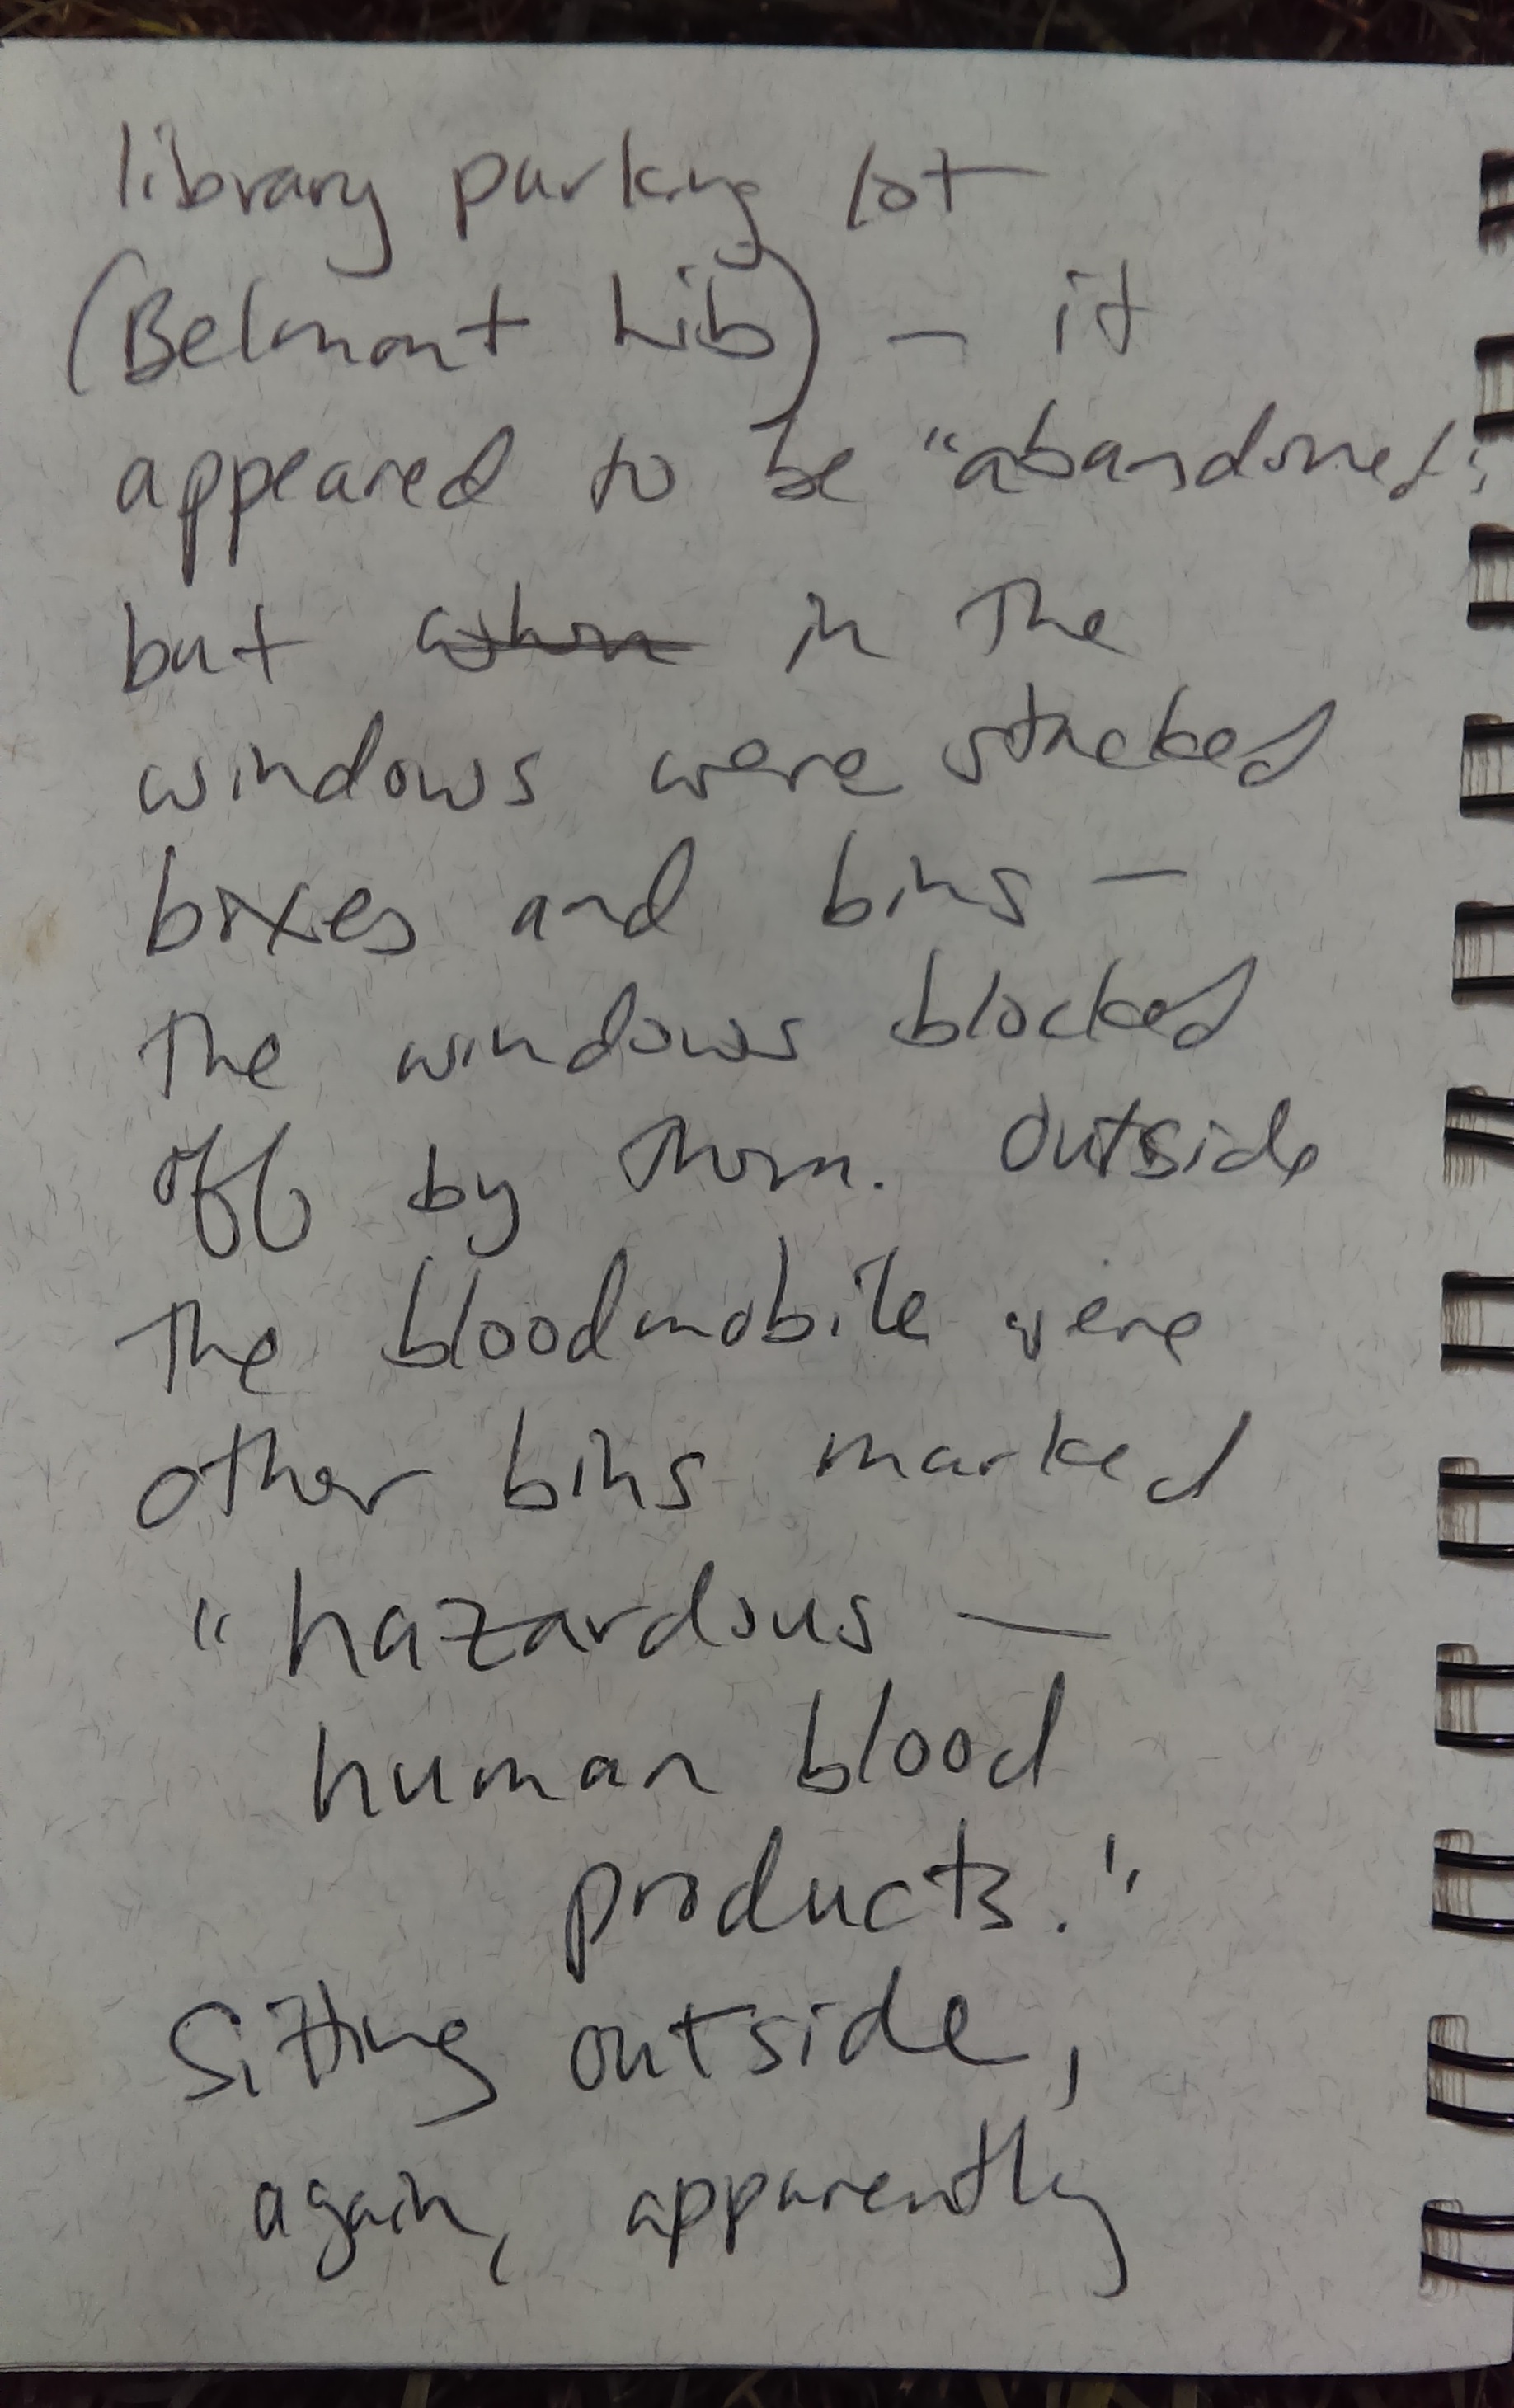 library parking lot
(Belmont Lib) — it
appeared to be "abandoned"
but in the
windows were stacked
boxes and bins —
The windows blocked
off by them. Outside
The bloodmobile were
other bins marked
"hazardous —
human blood
products."
Sitting outside,
again, apparently